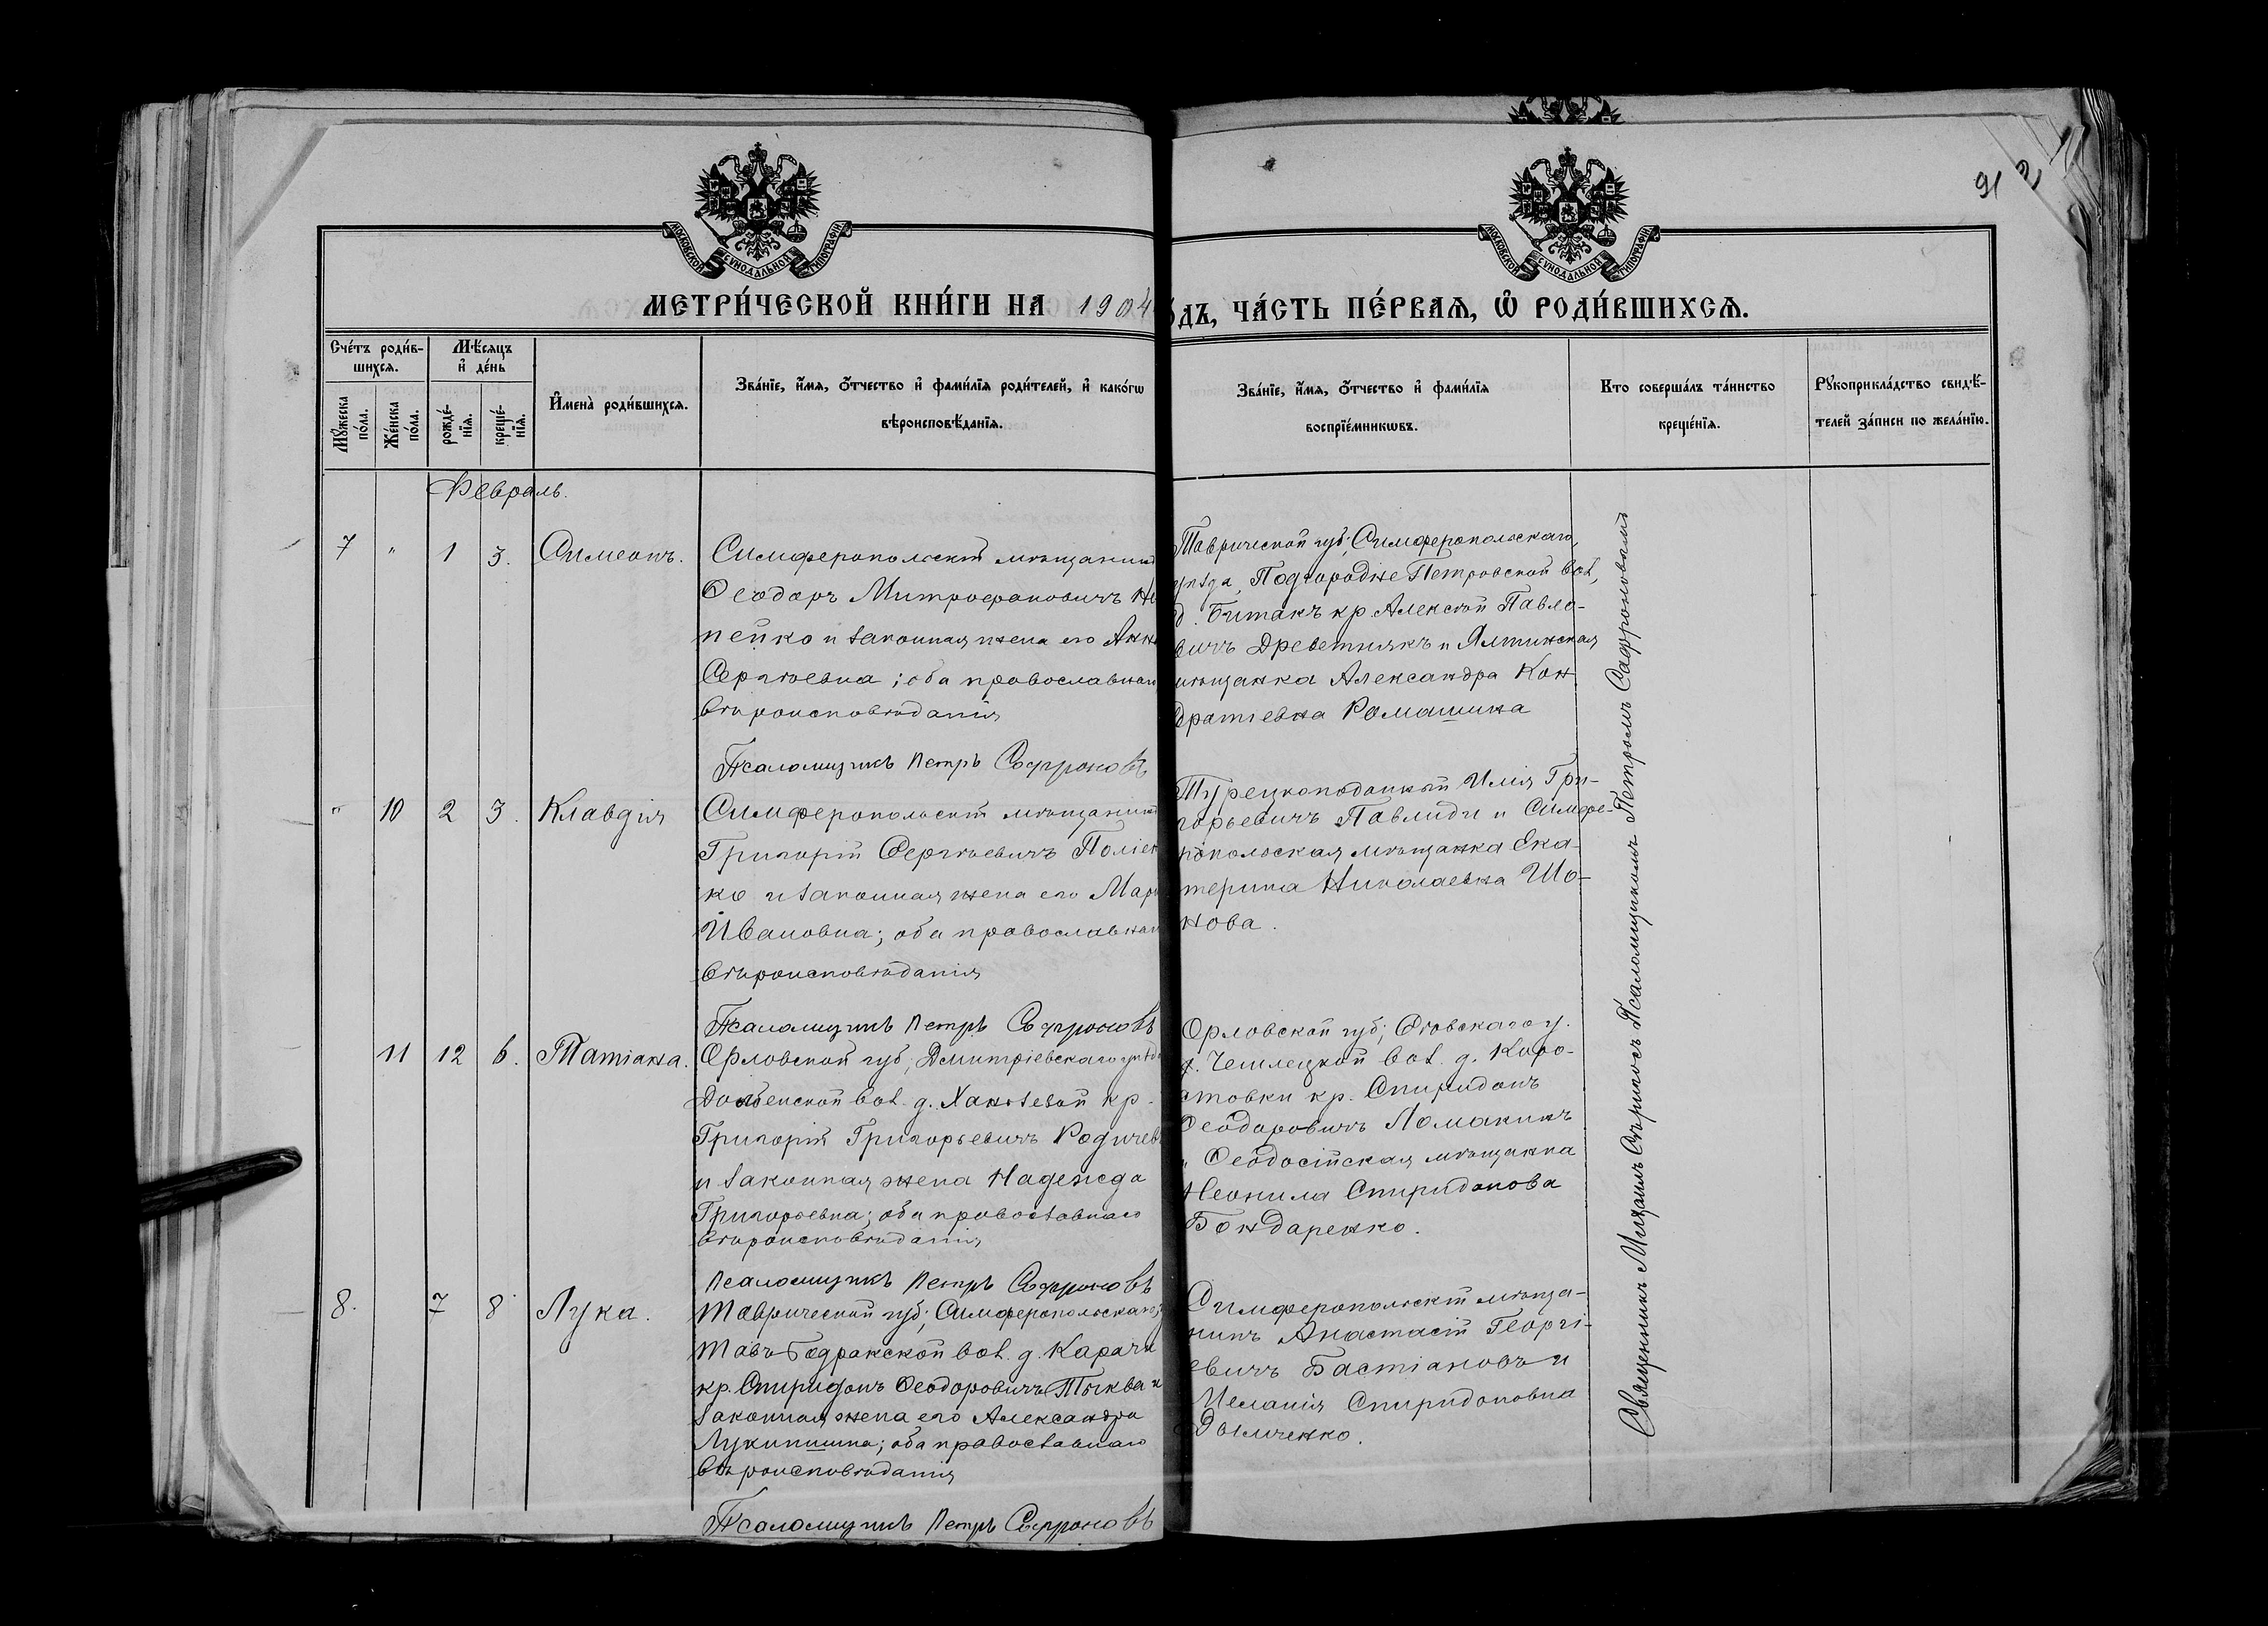 91 2
МОСКОВСКОЙ СУНОДАЛЬНОЙ ТИПОГРАФІИ
МОСКОВСКОЙ СУНОДАЛЬНОЙ ТИПОГРАФІИ
МЕТРИ́ЧЕСКОЙ КНИ́ГИ НА 1904
о́дъ, ЧА́СТЬ ПЕ́РВАѦ, Ѡ҆ РОДИ́ВШИХСѦ.
Сче́тъ роди́в-
шихсѧ.
Мꙋ́жеска
по́ла.
Же́нска
по́ла.
Мѣ́сѧцъ
и҆ де́нь
рожде́-
нїѧ.
креще́-
нїѧ.
И҆мена̀ роди́вшихсѧ.
Зва́нїе, и҆́мѧ, ѻ҆́тчество и҆ фами́лїѧ роди́телей, и҆ како́гѡ
вѣроисповѣ́данїѧ.
Зва́нїе, и҆́мѧ, ѻ҆́тчество и҆ фами́лїѧ
воспрїе́мникѡвъ.
Кто соверша́лъ та́инство
креще́нїѧ.
Рꙋкоприкла́дство свидѣ́-
телей за́писи по жела́нїю.
Февраль.
7 " 1 3. Симеонъ.
Симферопольскій мѣщанинъ
Ѳеодоръ Митрофановичъ Не
пейко и законная жена его Анн
Сергѣевна; оба православнаго
вѣроисповѣданія
Псаломщикъ Петръ Сафроновъ
Таврической губ; Симферопольскаго
уѣзда, Подгородне Петровской вол,
д. Битакъ кр Алексѣй Павло-
вичъ Древетнякъ и Ялтинская
мѣщанка Александра Кон
дратіевна Ромашина
" 10 2 3. Клавдія
Симферопольскій мѣщанинъ
Григорій Сергѣевичъ Поліен
ко и законная жена его Мари
Ивановна; оба православнаго
вѣроисповѣданія
Псаломщикъ Петръ Сафроновъ
Турецкоподанный Илія Гри-
горьевичъ Павлиди и Симфе-
ропольская мѣщанка Ека-
терина Николаевна Шо-
нова.
11 12 6. Татіана.
Орловской губ; Дмитріевскаго уѣзда
вол. д. кр.
Григорій Григорьевичъ Родичевъ
и законная жена Надежда
Григорьевна; оба православнаго
вѣроисповѣданія
Псаломщикъ Петръ Сафроновъ
Орловской губ; у.
вол. д. Коро-
атовки кр. Спиридонъ
Ѳеодоровичъ Ломакинъ
и Ѳеодосійская мѣщанка
Неонила Спиридонова
Бондаренко.
8. 7 8 Лука.
Таврической губ; Симферопольскаго у
Тавъ Бодракской вол. д. Карачи
кр. Спиридонъ Ѳеодоровичъ Тыква и
законная жена его Александра
Лукинишна; оба православнаго
вѣроисповѣданія
Псаломщикъ Петръ Сафроновъ
Симферопольскій мѣща-
нинъ Анастасій Георгі-
евичъ Бастіановъ и
Меланія Спиридоновна
Дымченко.
Священникъ Михаилъ съ Псаломщикомъ Петромъ Сафроновымъ